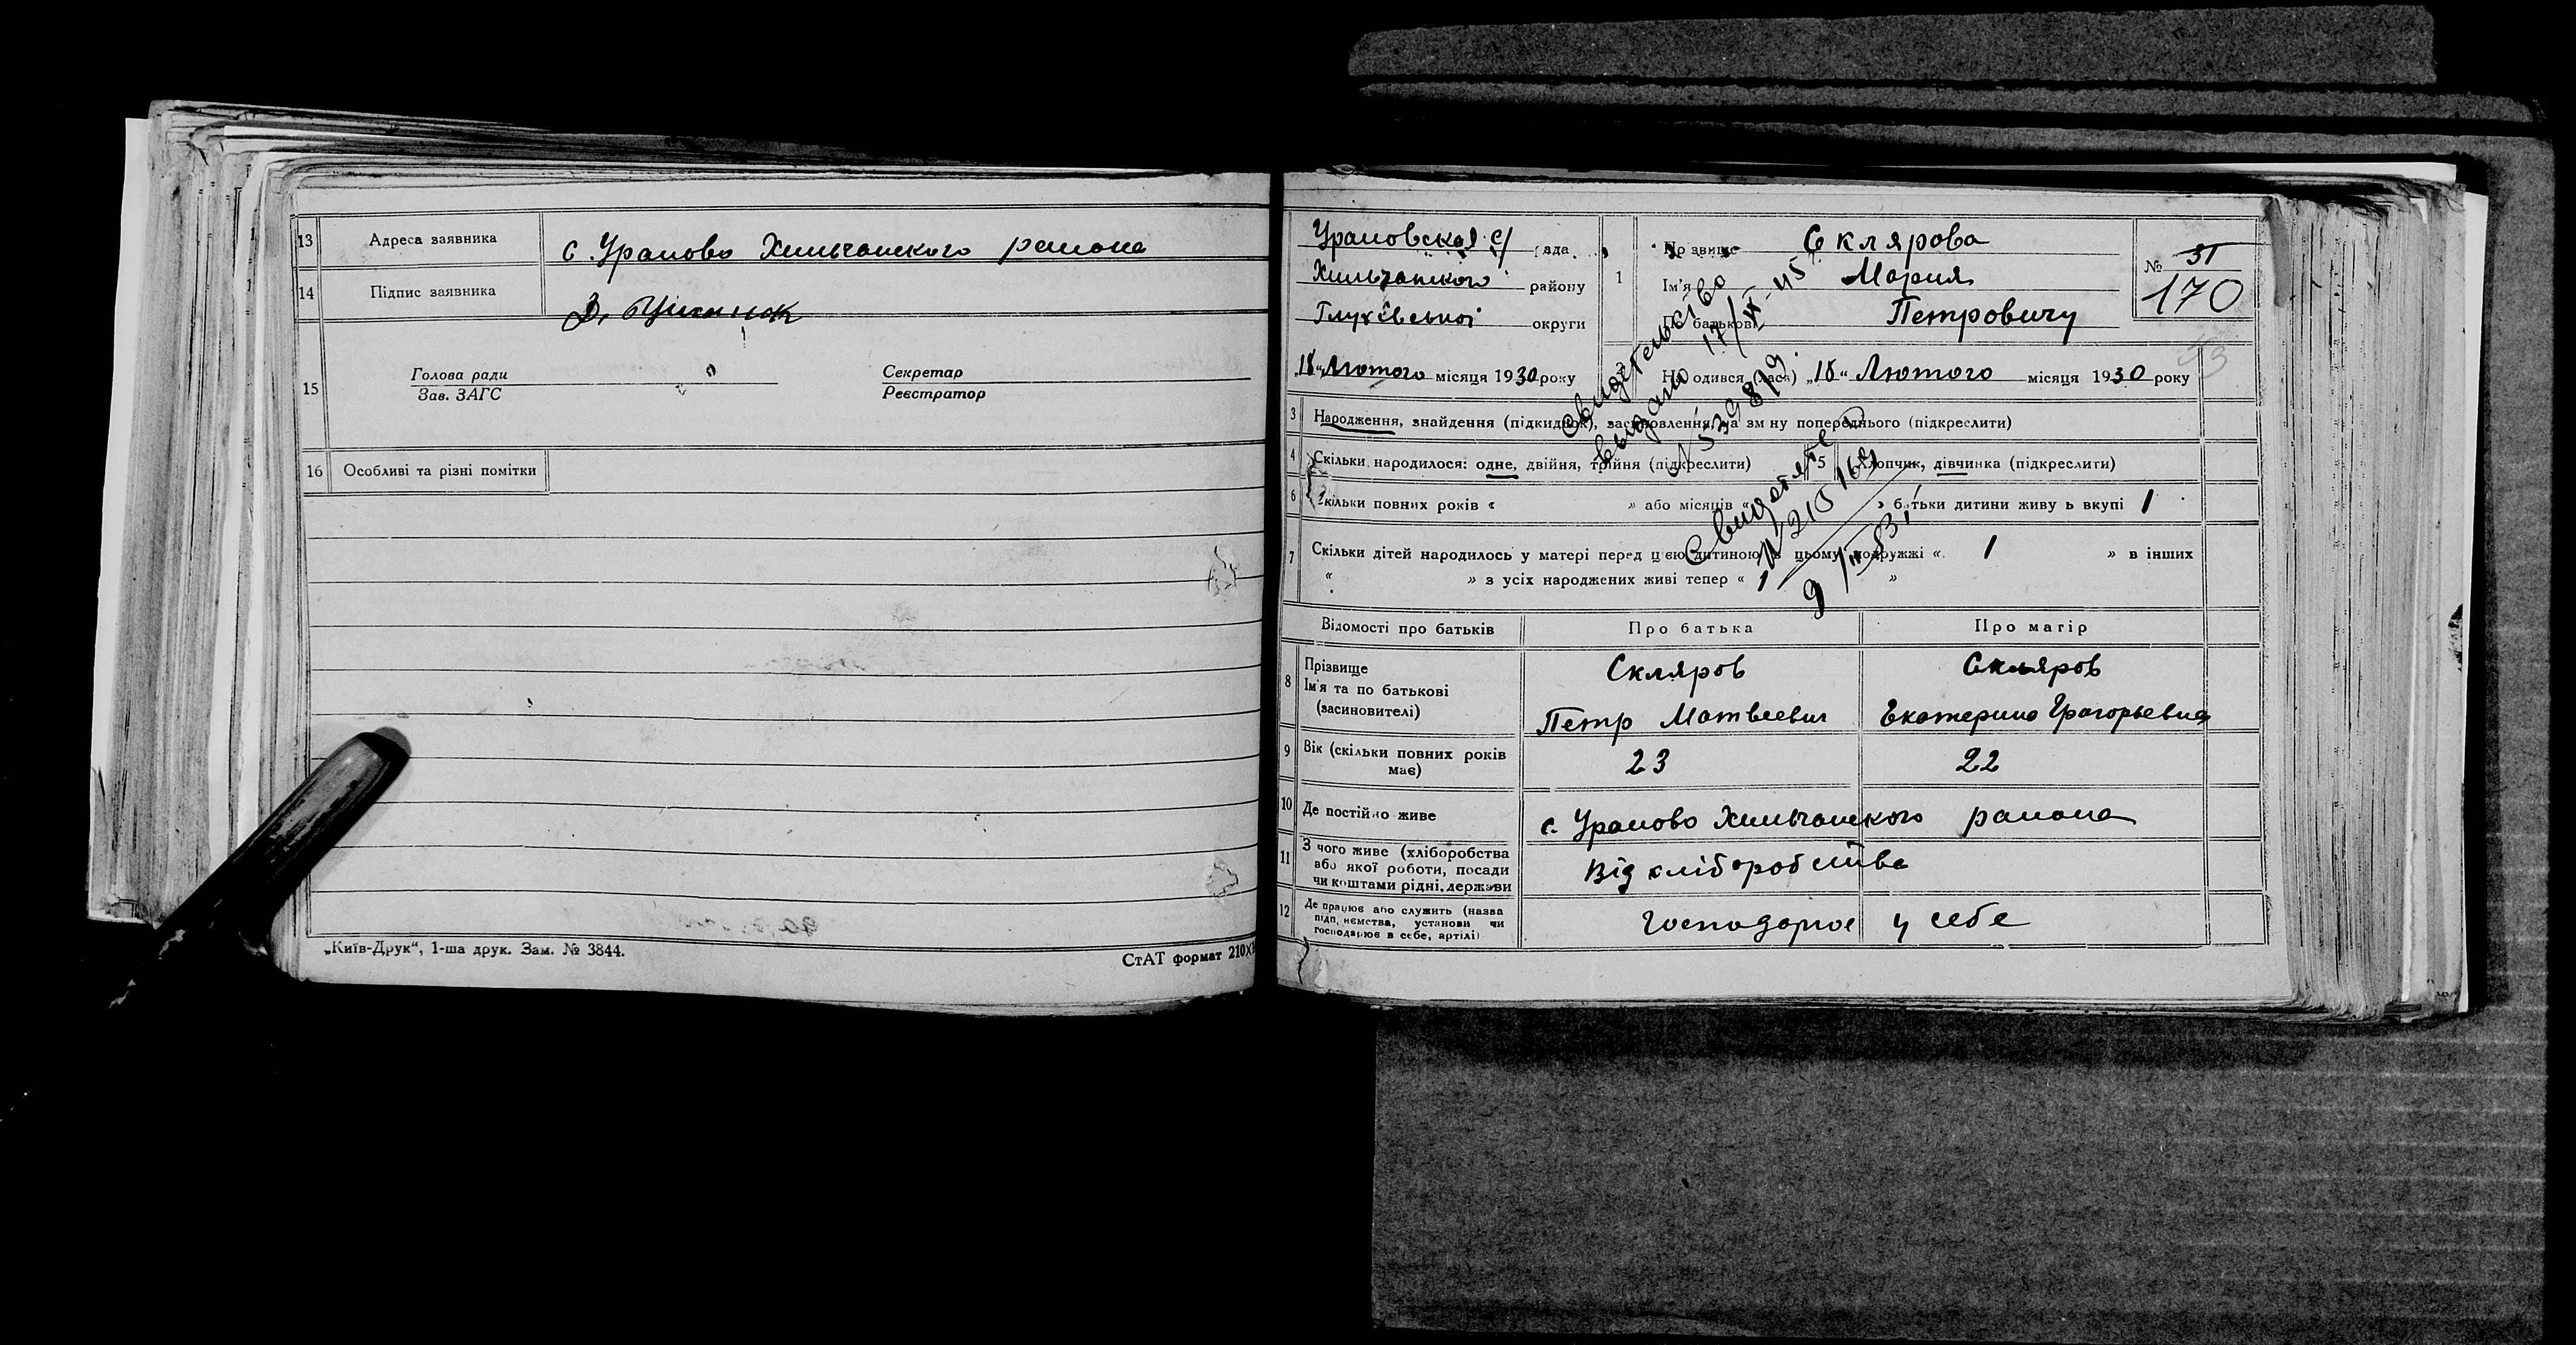 13 Адреса заявника с. Уралово Хильчанского района
14 Підпис заявника
15 Голова ради
Зав. ЗАГС
Секретар
Реєстратор
16 Особливі та різні помітки
„Київ-Друк“, 1-ша друк. Зам. № 3844.
СтАТ формат 210Х
Ураловская с/ рада
Хильчанского району
Глухівської округи
„18“ Лютого місяця 1930 року
1 Прозвище Склярова
Ім'я Мария
По батькові Петровичу
№ 31
170
Народився (лась) „18“ Лютого місяця 1930 року
3 Народження, знайдення (підкидьок), засиновлення, на зміну попереднього (підкреслити)
4 Скільки народилося: одне, двійня, трійня (підкреслити)
5 Хлопчик, дівчинка (підкреслити)
6 Скільки повних років « » або місяців « » батьки дитини живуть вкупі 1
7 Скільки дітей народилось у матері перед цією дитиною в цьому подружжі « 1 » в інших
« » з усіх народжених живі тепер « 1 »
Свидетельство
выдано 17/IX-45
N 539819.
Відомості про батьків
Про батька
Про матір
8 Прізвище
Ім'я та по батькові
(засиновителі)
Скляров
Петр Матвеевич
Скляров
Екатерина Григорьевна
9 Вік (скільки повних років
має)
23
22
10 Де постійно живе
с. Уралово Хильчанского района
11 З чого живе (хліборобства
або якої роботи, посади
чи коштами рідні, держави
Від хліборобства
12 Де працює або служить (назва
підп, ємства, установи чи
господарює в себе, артілі)
Господарює у себе